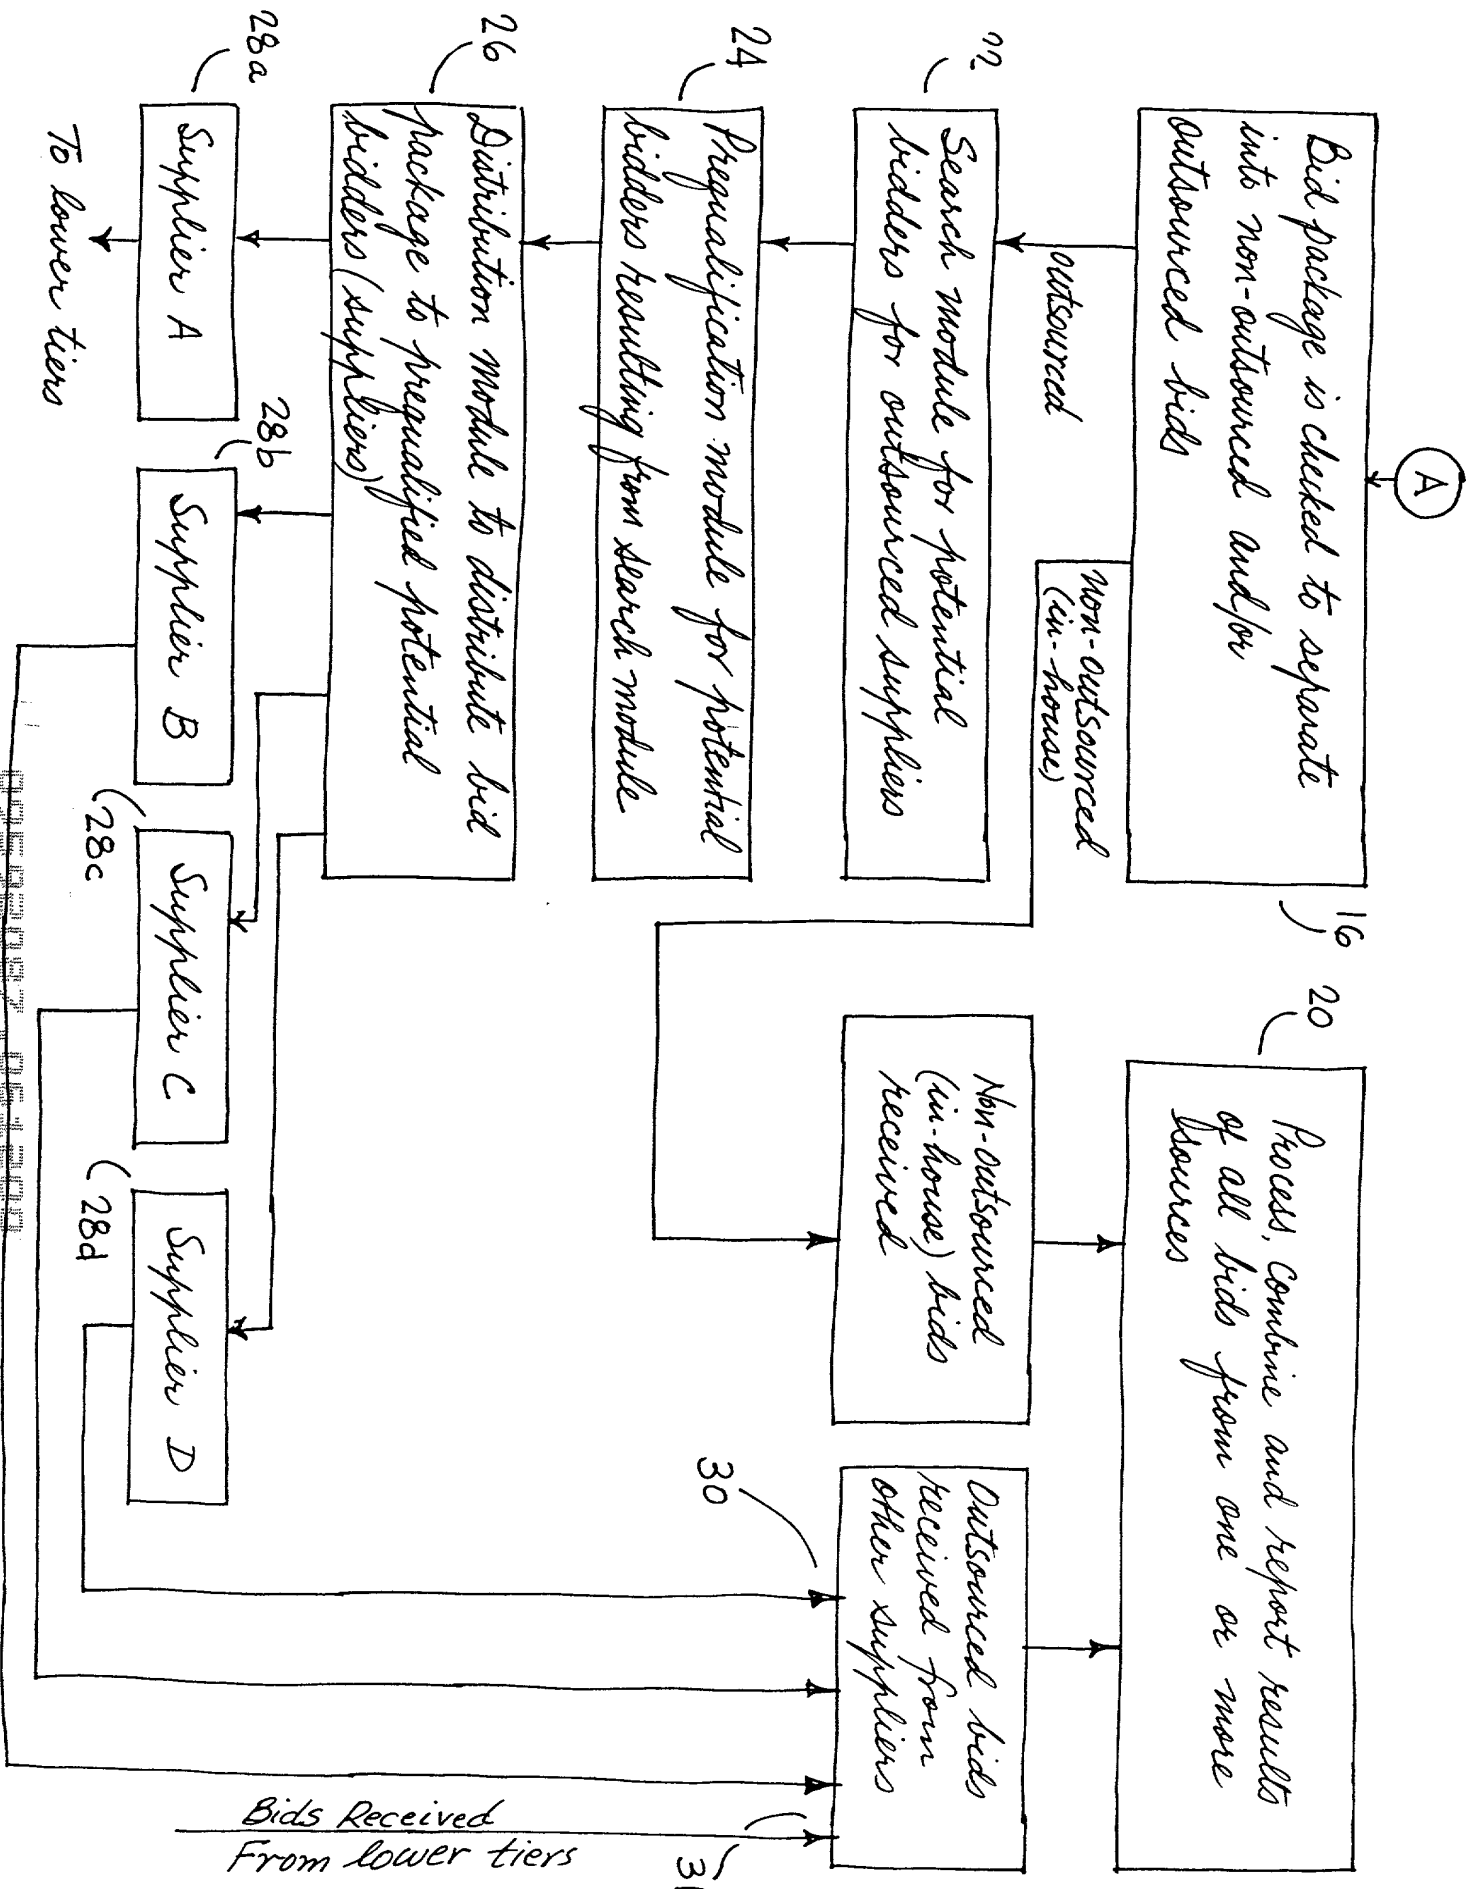 A
Bid package is checked to separate
into non-outsourced and/or
outsourced bids
16
outsourced
non-outsourced
(in-house)
22
Search module for potential
bidders for outsourced suppliers
24
Prequalification module for potential
bidders resulting from search module
26
Distribution module to distribute bid
package to prequalified potential
bidders (suppliers)
28a
Supplier A
To lower tiers
28b
Supplier B
28c
Supplier C
28d
Supplier D
20
Process, combine and report results
of all bids from one or more
sources
Non-outsourced
(in-house) bids
received
30
Outsourced bids
received from
other suppliers
Bids Received
From lower tiers